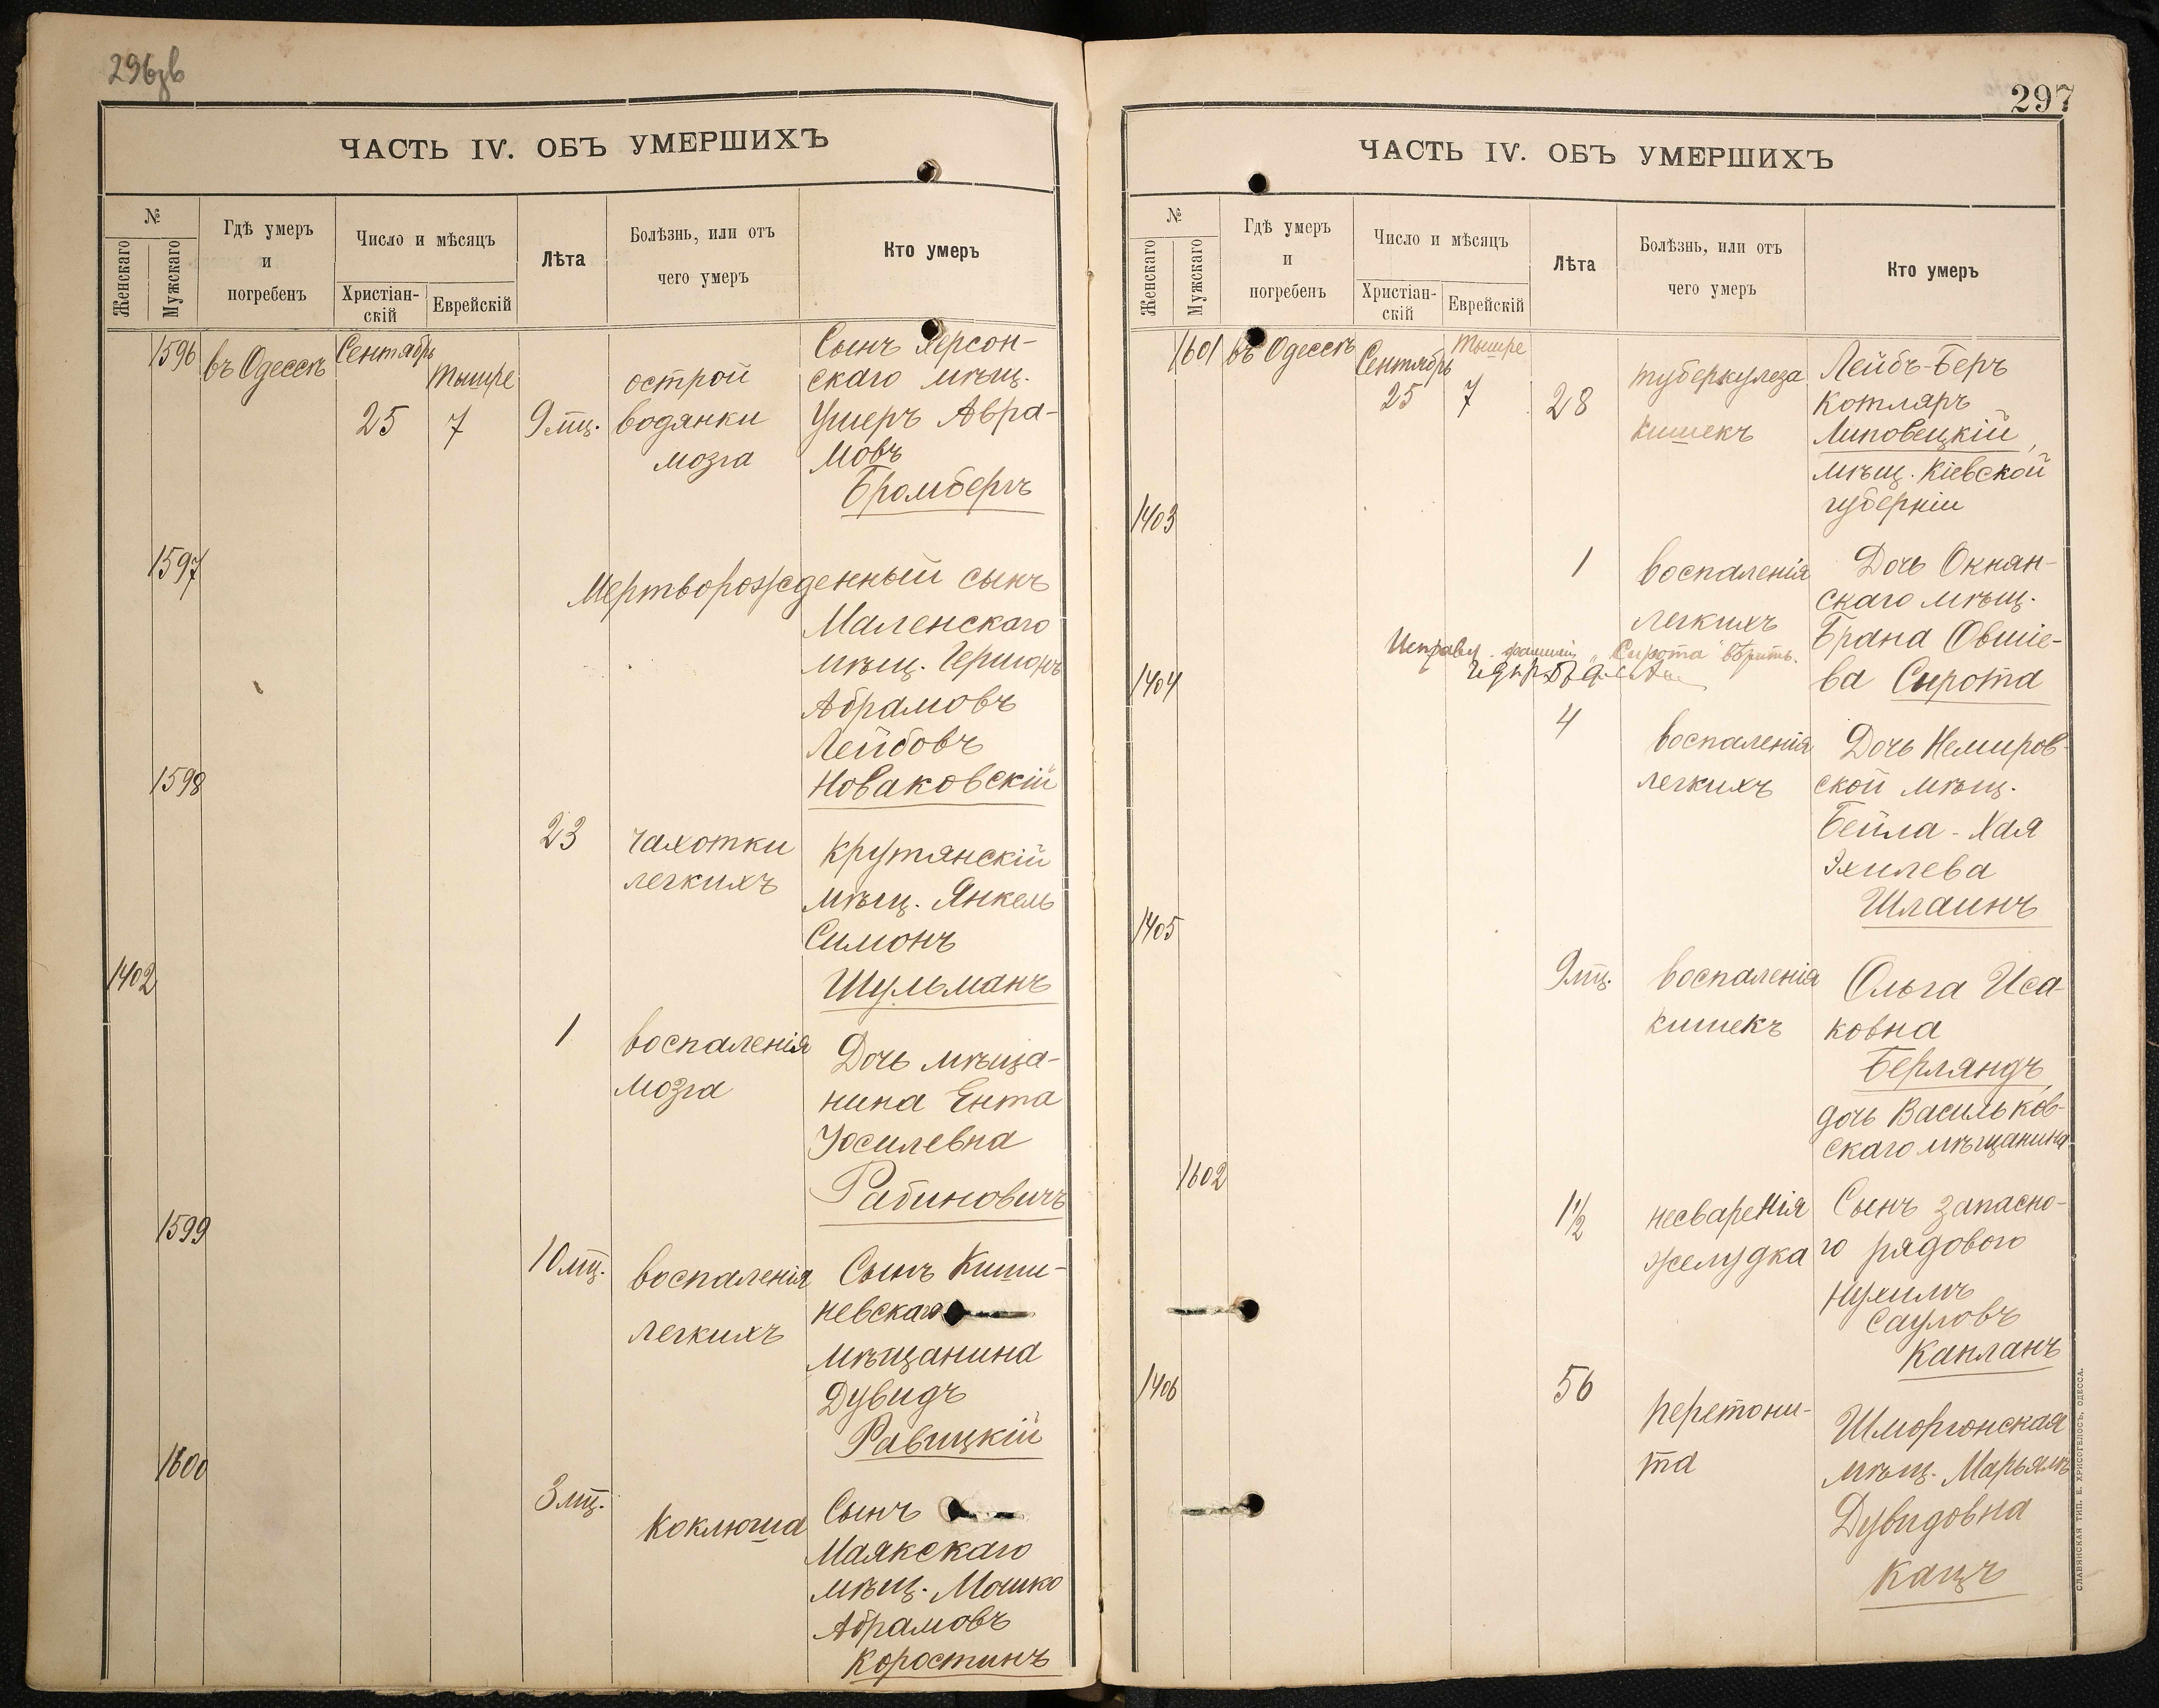 296зв
ЧАСТЬ IV. ОБЪ УМЕРШИХЪ
№
Женскаго
Мужскаго
Гдѣ умеръ
и
погребенъ
Число и мѣсяцъ
Христіан-
скій
Еврейскій
Лѣта
Болѣзнь, или отъ
чего умеръ
Кто умеръ
1596
въ Одессѣ
Сентябрь
25
Тышре
7
9 мц.
острой
водянки
мозга
Сынъ Херсон-
скаго мѣщ.
Ушеръ Авра-
мовъ
Бромбергъ
1597
Мертворожденный сынъ
Маленскаго
мѣщ. Гершонъ
Абрамовъ
Лейбовъ
Новаковскій
1598
23
чахотки
легкихъ
Крутянскій
мѣщ. Янкель
Симонъ
Шульманъ
1402
1
воспаленія
мозга
Дочь мѣща-
нина Ента
Іосилевна
Рабиновичъ
1599
10 мц.
воспаленія
легкихъ
Сынъ Киши-
невскаго
мѣщанина
Дувидъ
Равицкій
1600
3 мц.
коклюша
Сынъ
Маякскаго
мѣщ. Мошко
Абрамовъ
Коростинъ
297
ЧАСТЬ IV. ОБЪ УМЕРШИХЪ
№
Женскаго
Мужскаго
Гдѣ умеръ
и
погребенъ
Число и мѣсяцъ
Христіан-
скій
Еврейскій
Лѣта
Болѣзнь, или отъ
чего умеръ
Кто умеръ
1601
въ Одессѣ
Сентябрь
25
Тышре
7
28
туберкулеза
кишекъ
Лейбъ-Беръ
Котляръ
Липовецкій,
мѣщ. Кіевской
губерніи
1403
1
воспаленія
легкихъ
Дочь Окнян-
скаго мѣщ.
Брана Овшіе-
ва Сирота
Исправ. фамилія "Сирота" вѣрить.
1404
4
воспаленія
легкихъ
Дочь Немиров-
ской мѣщ.
Бейла-Хая
Эхилева
Шлаинъ
1405
9 мц.
воспаленія
кишекъ
Ольга Иса-
ковна
Берляндъ,
дочь Васильков-
скаго мѣщанина
1602
1 1/2
несваренія
желудка
Сынъ запасно-
го рядового
Нухимъ
Сауловъ
Капланъ
1406
56
перетони-
та
Шморгонская
мѣщ. Марьямъ
Дувидовна
Кацъ
СЛАВЯНСКАЯ ТИП. Е. ХРИСОГЕЛОСЪ, ОДЕССА.